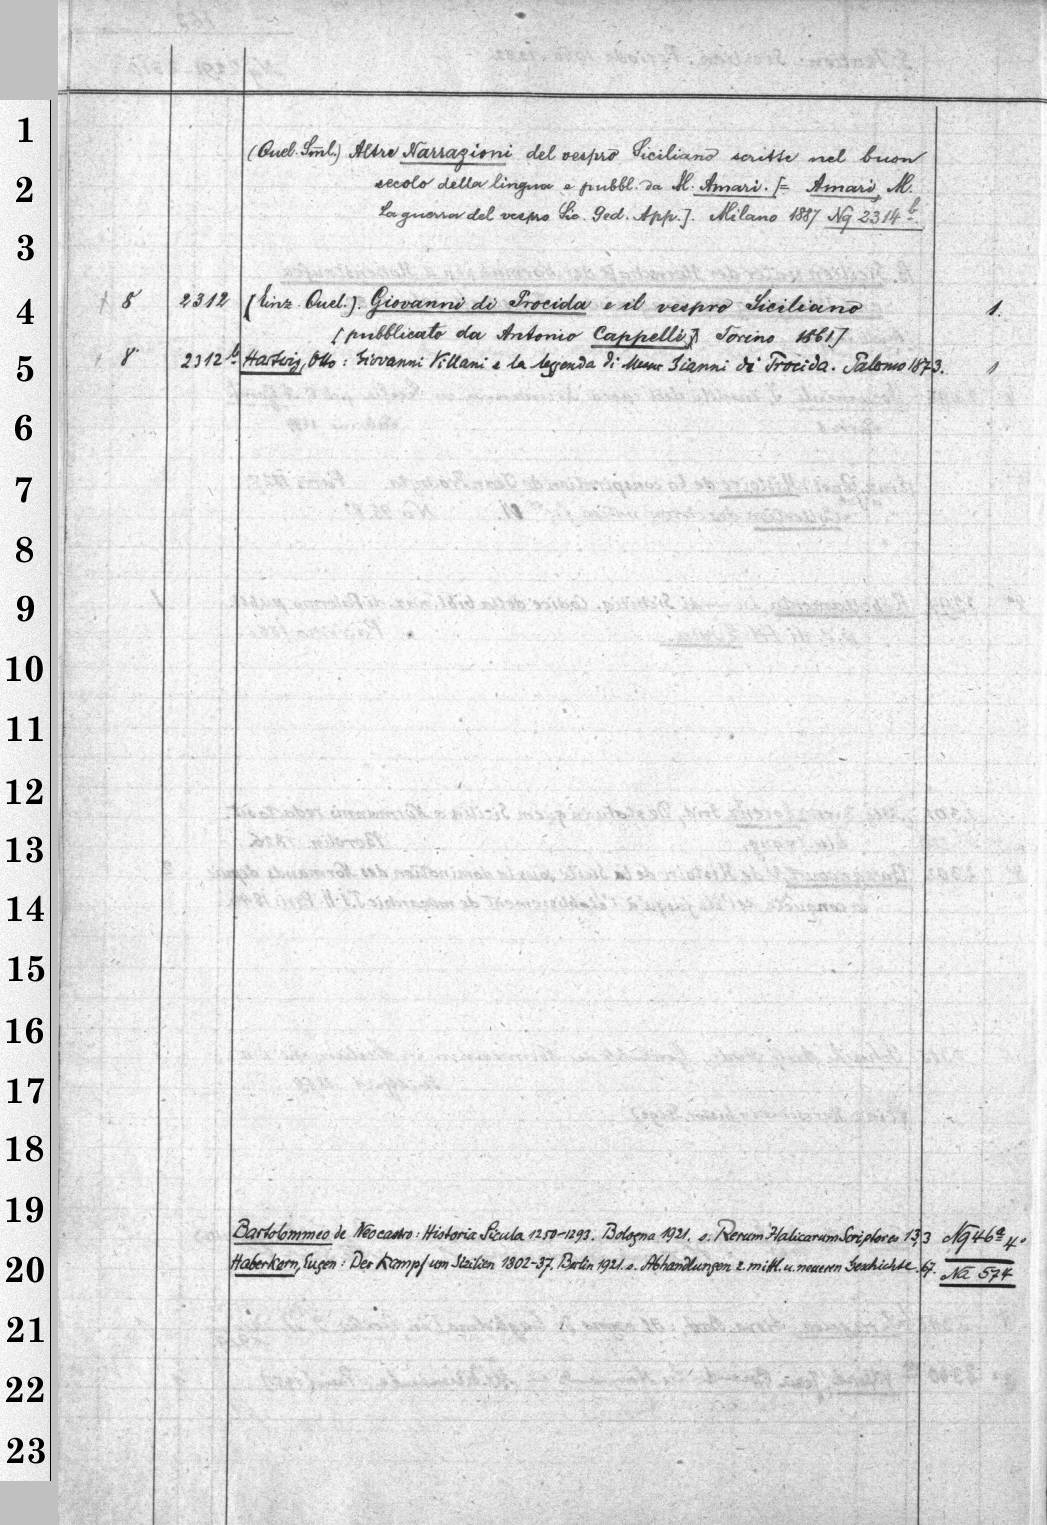 1
2
3
4
5
6
7
8
9
10
11
12
13
14
15
16
17
18
19
20
21
22
23
(Quel. Sml.) Altre Narrazioni del vespro Siciliano scritte nel buon
secolo della lingua e pubbl. da M. Amari. [= Amari, M.
La guerra del vespro Sic. Ged. App.]. Milano 1887 Nq 2314 b.
+ 8 2312 (Einz. Quel.). Giovanni di Procida e il vespro Siciliano 1.
[pubblicato da Antonio Cappelli] Torino 1861]
8 2312 b. Hartwig, Otto: Giovanni Villani e la leggenda di Messer Gianni di Procida. Palermo 1873. 1
Bartolommeo de Neocastro: Historia Sicula 1250-1293. Bologna 1921. s. Rerum Italicarum Scriptores 13,3 Nq 46 a 4°
Haberkern, Eugen: Der Kampf um Sizilien 1302-37. Berlin 1921. s. Abhandlungen z. mittl. u. neueren Geschichte. 67. Na 574